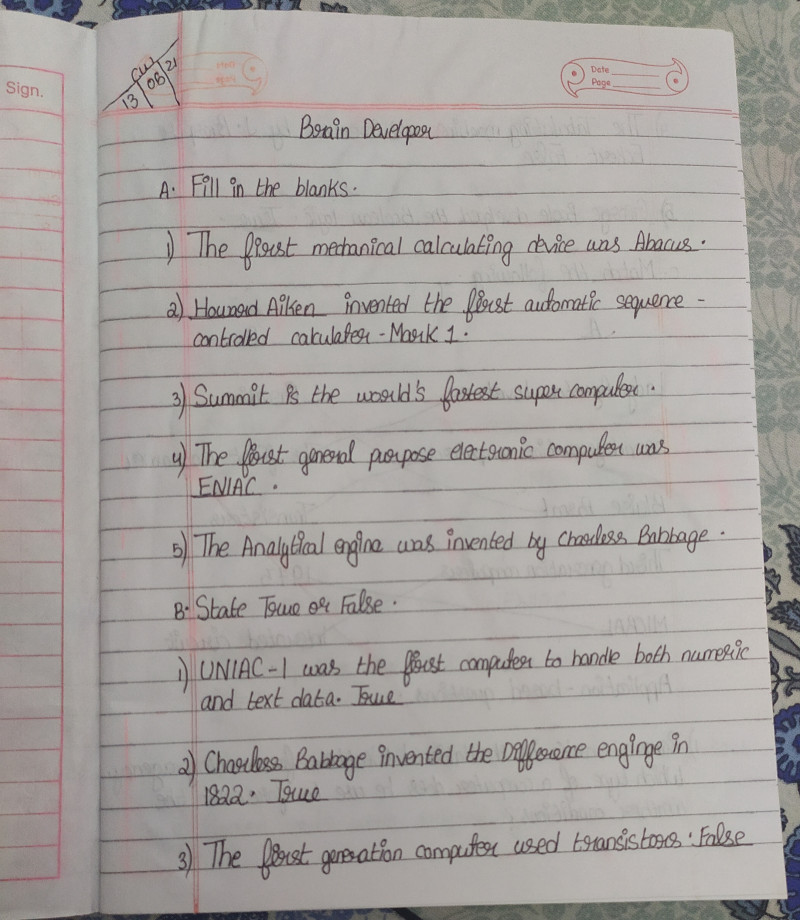 Sign.
CW
13/08/21
Date
Page
Brain Developer
A. Fill in the blanks.
1) The first mechanical calculating device was Abacus.
2) Howard Aiken invented the first automatic sequence -
controlled calculater - Mark 1.
3) Summit is the world's fastest super computer.
4) The first general purpose electronic computer was
ENIAC.
5) The Analytical engine was invented by Charless Babbage.
B. State True or False.
1) UNIAC-1 was the first computer to handle both numeric
and text data. True
2) Charless Babbage invented the Difference enginge in
1822. True
3) The first generation computer used transistors. False